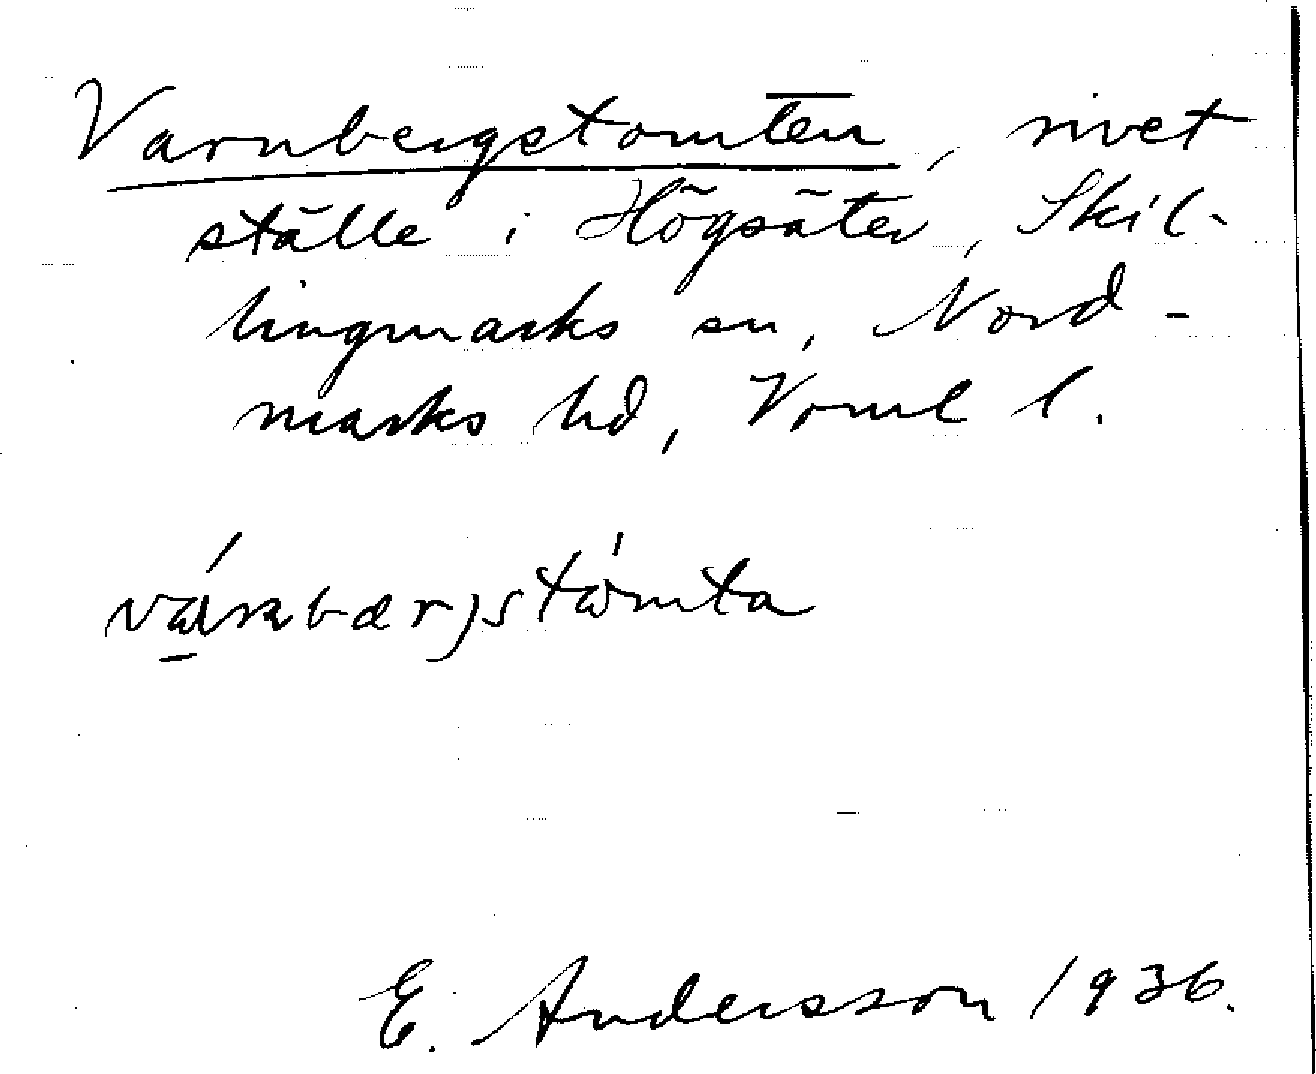 Varnbergstomten, rivet
ställe i Högsäter, Skil-
lingmarks sn, Nord-
marks hd, Verml l.
E. Andersson 1936.